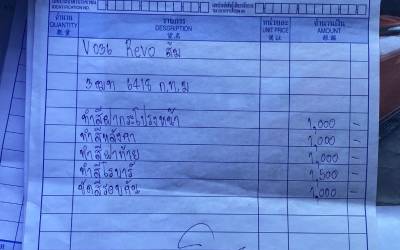 IDENTIFICATION NO.
จำนวน
QUANTITY
รายการ
DESCRIPTION
หน่วยละ
UNIT PRICE
จำนวนเงิน
AMOUNT
Vo36 Revo ส้ม
6418 ก.ท.ม
ทำสีฝากระโปรงหน้า 1,000 -
ทำสีหลังคา 1,000 -
ทำสีฝาท้าย 1,000 -
ทำสีโรบาร์ 1,500 -
ขัดสีรอบคัน 1,000 -